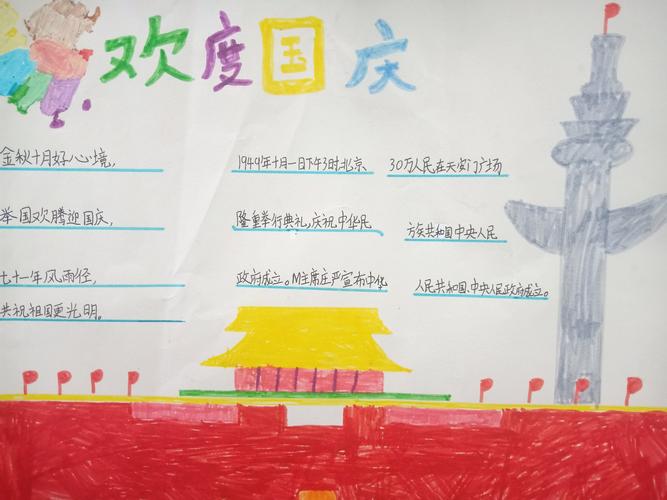 欢度国庆
金秋十月好心境,
举国欢腾迎国庆,
七十一年风雨径,
共祝祖国更光明。
1949年十月一日下午3时北京 30万人民在天安门广场
隆重举行典礼,庆祝中华民 族共和国中央人民
政府成立。M主席庄严宣布中华 人民共和国、中央人民政府成立。